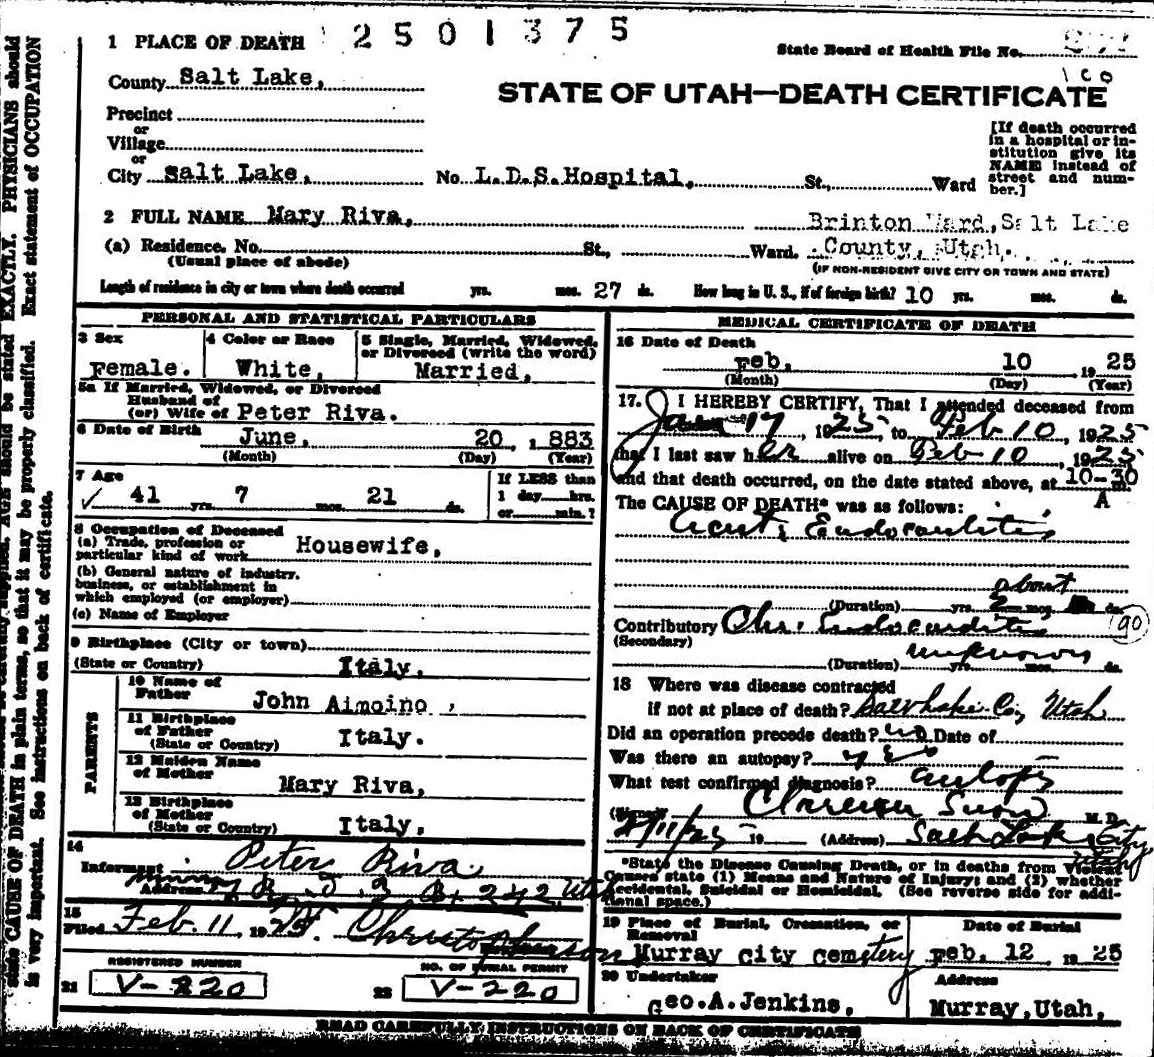 state CAUSE OF DEATH in plain terms, so that it may be properly classified. Exact statement of OCCUPATION
is very important. See instructions on back of certificate.
1 PLACE OF DEATH 2501375
State Board of Health File No.
County Salt Lake,
100
STATE OF UTAH—DEATH CERTIFICATE
Precinct
or
Village
or
City Salt Lake, No. L.D.S.Hospital, St., Ward
[If death occurred
in a hospital or in-
stitution give its
NAME instead of
street and num-
ber.]
2 FULL NAME Mary Riva,
Brinton Ward, Salt Lake
(a) Residence. No. St., Ward. County, Utah.
(Usual place of abode) (IF NON-RESIDENT GIVE CITY OR TOWN AND STATE)
Length of residence in city or town where death occurred yrs. mos. 27 ds. How long in U. S., if of foreign birth? 10 yrs. mos. ds.
PERSONAL AND STATISTICAL PARTICULARS
3 Sex
Female.
4 Color or Race
White,
5 Single, Married, Widowed,
or Divorced (write the word)
Married,
5a If Married, Widowed, or Divorced
Husband of
(or) Wife of Peter Riva.
6 Date of Birth June, 20 , 883
(Month) (Day) (Year)
7 Age
41 yrs. 7 mos. 21 ds.
If LESS than
1 day hrs.
or min.?
8 Occupation of Deceased
(a) Trade, profession or
particular kind of work Housewife,
(b) General nature of industry,
business, or establishment in
which employed (or employer)
(c) Name of Employer
9 Birthplace (City or town)
(State or Country) Italy.
PARENTS
10 Name of
Father John Aimoino,
11 Birthplace
of Father
(State or Country) Italy.
12 Maiden Name
of Mother Mary Riva,
13 Birthplace
of Mother
(State or Country) Italy,
14
Informant Peter Riva
Address Murray R. D. 3 B. 242, Utah
15
Filed Feb. 11, 1925.
REGISTERED NUMBER
21 V-220
NO. OF BURIAL PERMIT
22 V-220
MEDICAL CERTIFICATE OF DEATH
16 Date of Death
Feb, 10 , 19 25
(Month) (Day) (Year)
17. I HEREBY CERTIFY, That I attended deceased from
Jan 17, 1925, to Feb 10, 1925
that I last saw her alive on Feb 10, 1925
and that death occurred, on the date stated above, at 10-30 A m.
The CAUSE OF DEATH* was as follows:
Acute Endocarditis
about
(Duration) yrs. 2 mos. ds.
Contributory Chr. Endocarditis 90
(Secondary)
unknown
(Duration) yrs. mos. ds.
18 Where was disease contracted
if not at place of death? Salt Lake Co, Utah
Did an operation precede death? no Date of
Was there an autopsy? yes
What test confirmed diagnosis? autopsy
(Signed) M. D.
2/11/25 19 (Address) Salt Lake City
Utah
*State the Disease Causing Death, or in deaths from Violent
Causes state (1) Means and Nature of Injury; and (2) whether
Accidental, Suicidal or Homicidal. (See reverse side for addi-
tional space.)
19 Place of Burial, Cremation, or
Removal
Murray city cemetery
Date of Burial
Feb. 12 19 25
20 Undertaker
Geo.A.Jenkins,
Address
Murray,Utah,
READ CAREFULLY INSTRUCTIONS ON BACK OF CERTIFICATE